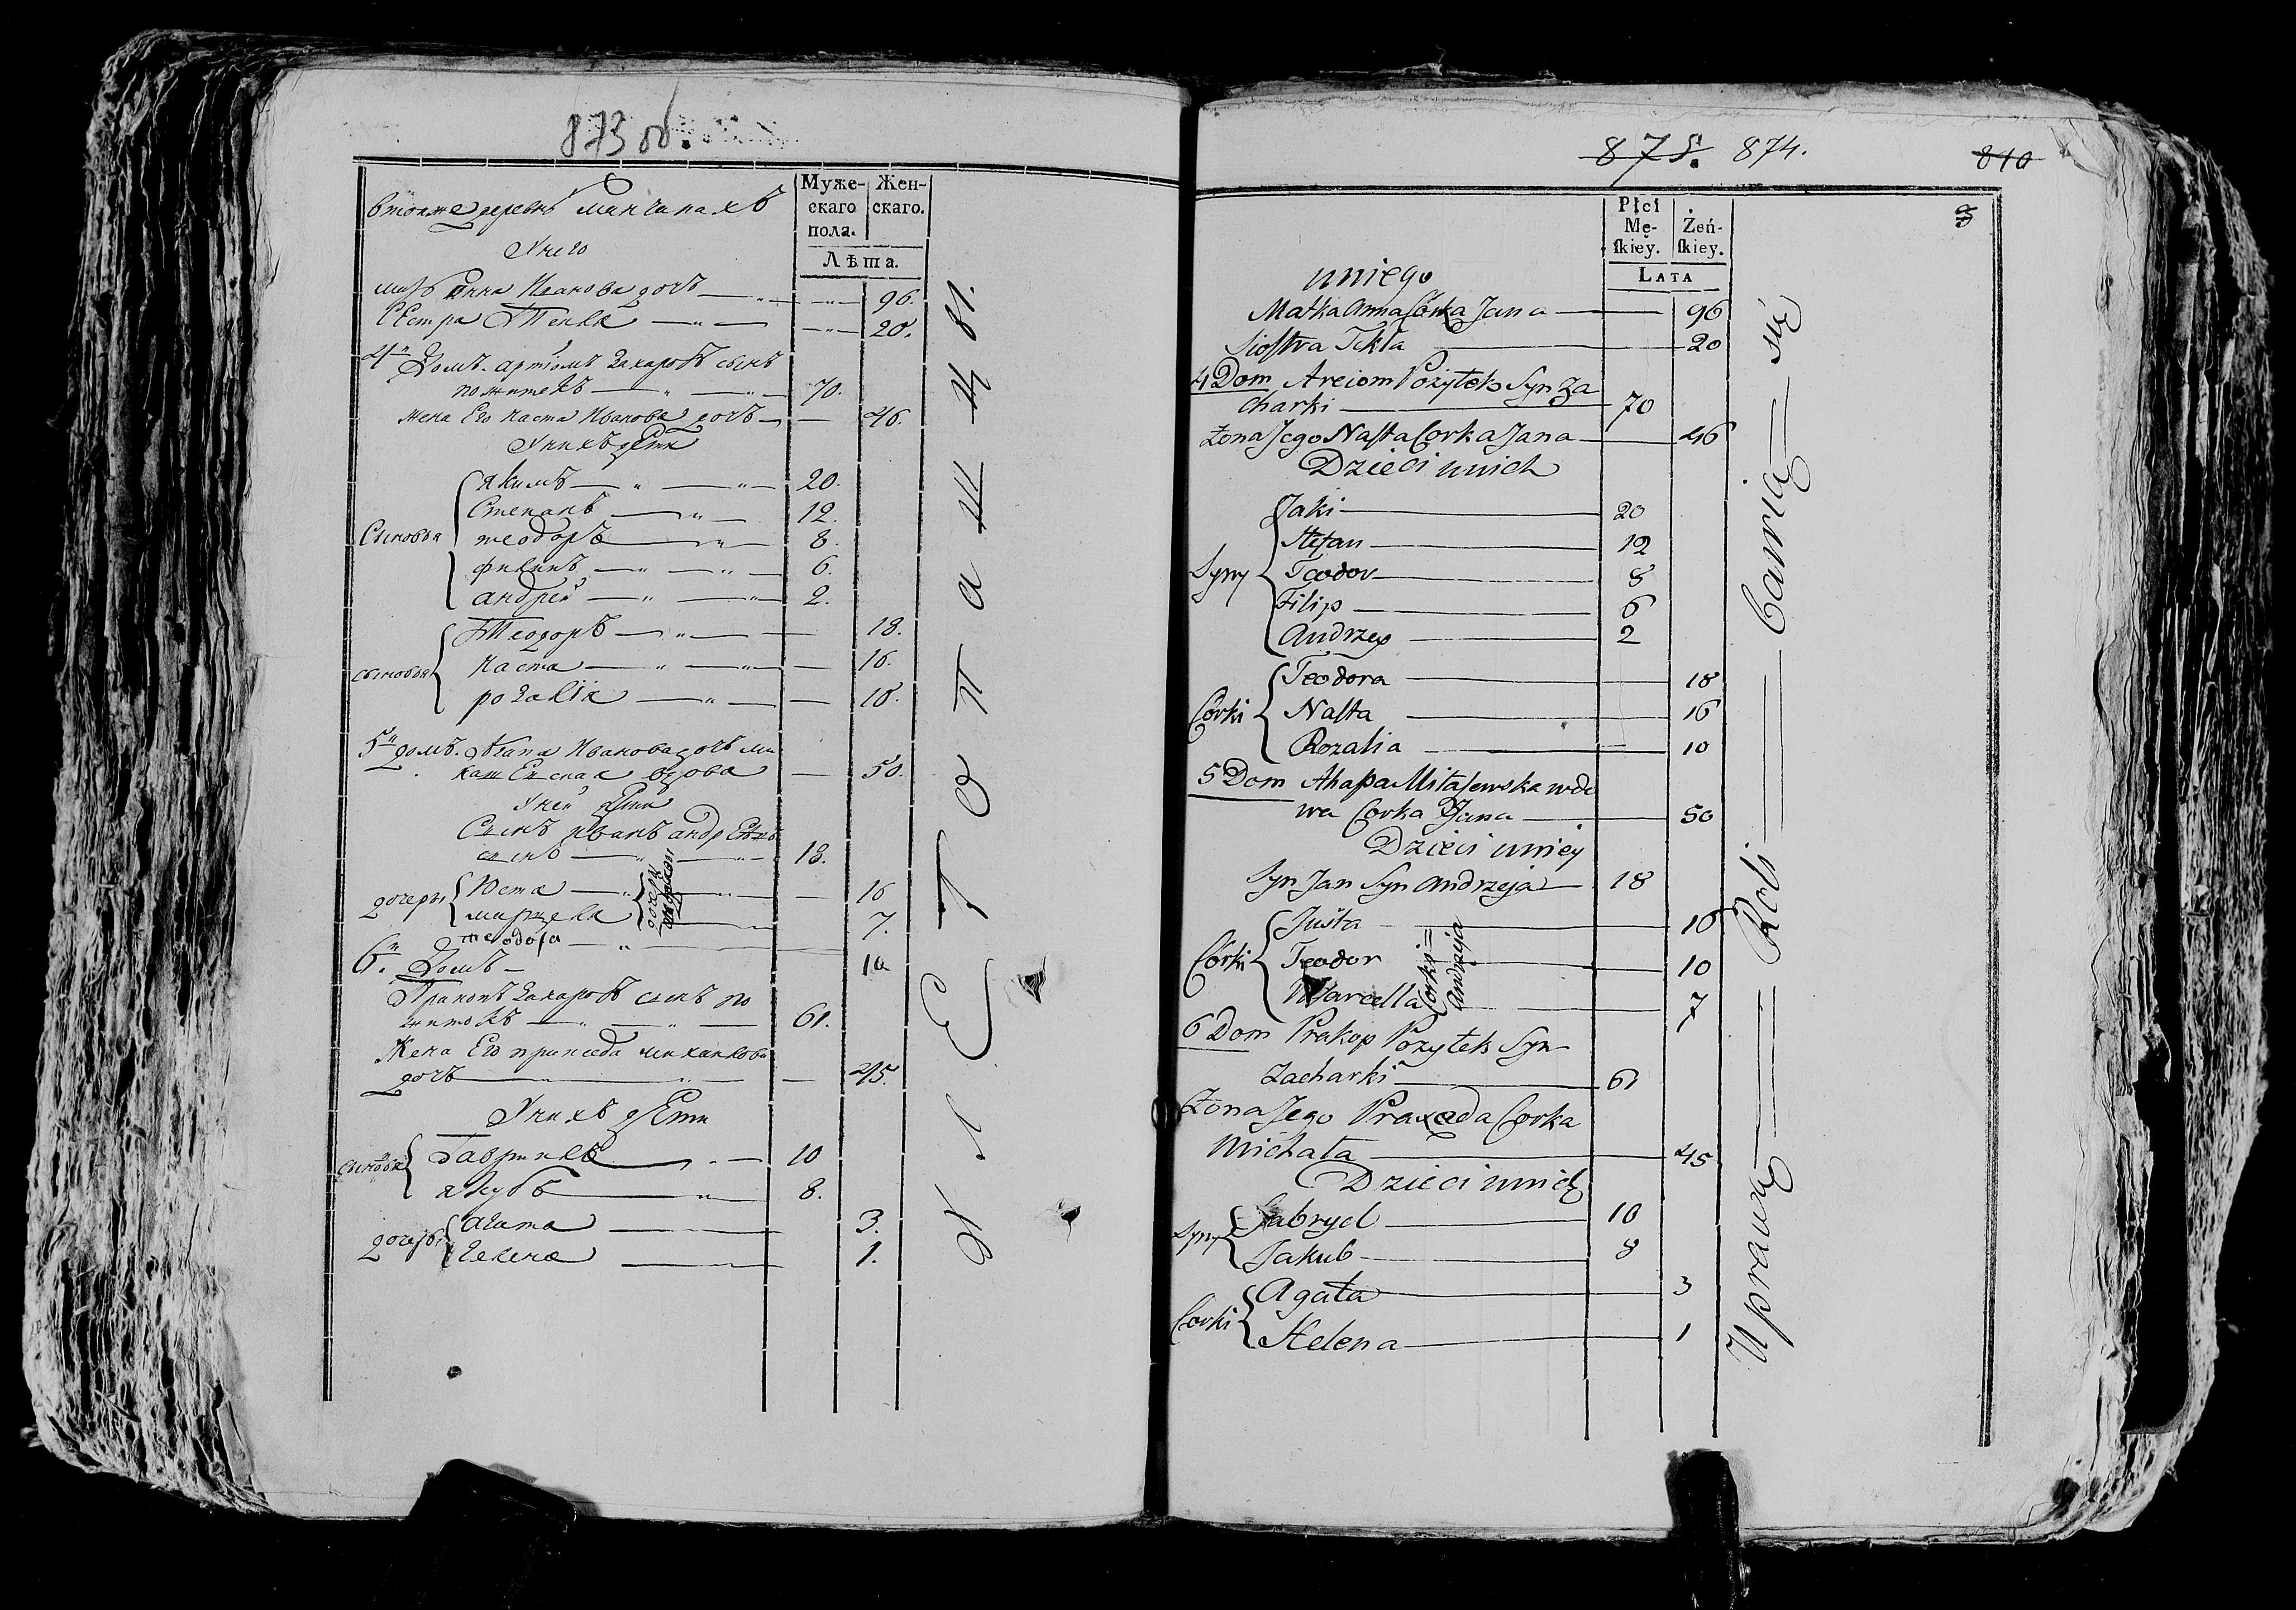 873 об.
Муже- Жен-
скаго скаго.
пола.
Лѣта.
втойже деревнѣ
Унего
мать Анна Иванова дочь 96.
Сестра Текля 20.
4й Домъ. артіомъ Захаровъ сынъ
пожитекъ 70.
жена Его наста Иванова дочь 46.
Унихъ дѣти
Сыновья
якимъ 20.
Степанъ 12.
теодоръ 8.
филипъ 6.
андрей 2.
сыновья
Теодоръ 18.
наста 16.
розалія 10.
5й домъ. Агапа Иванова дочь ми
вдова 50.
Уней дѣти
Сынъ Иванъ
сынъ 18.
дочери
Юста 16
марцеля 7.
теодора 10
дочери
6й. Домъ
Пракопъ Захаровъ сынъ по
житокъ 61.
Жена Его михайлова
дочь 45.
Унихъ дѣти
сыновья
Гаврила 10
якубъ 8.
дочери
агата 3.
гелена 1.
875. 874. 810
Płci Żeń-
Mę- skiey.
skiey.
Lata
uniego
Matka Anna Córka Jana 96
Siostra Tekla 20
4 Dom Arciom Pożytek Syn Za
charki 70
Żona Jego Nasta Corka Jana 46
Dzieci unich
Syny
Jaki 20
Stefan 12
Teodor 8
Filip 6
Andrzey 2
Córki
Teodora 18
Nasta 16
Rozalia 10
5 Dom Ahapa wdo
wa Corka Jana 50
Dzieci uniey
Syn Jan Syn Andrzeja 18
Córki
Justa 16
Teodor 10
Marcella 7
Corki=
Andrzeja
6 Dom Prakop Pożytek Syn
Zacharki 61
Żona Jego Praxeda Corka
Michała 45
Dzieci unich
Syny
Gabryel 10
Jakub 8
Corki
Agata 3
Helena 1
Uprawą Roli Bawią się